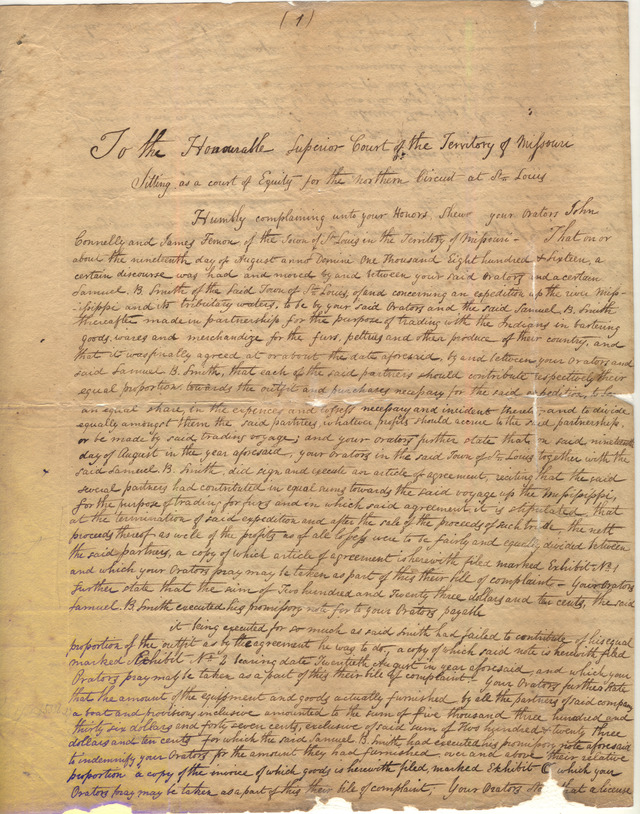 (1)
To the Honourable Superior Court of the Territory of Missouri
Sitting as a court of Equity for the Northern Circuit at St. Louis
Humbly complaining unto your Honors, Shew your Orators John
Connelly and James Ternon of the Town of St Louis in the Territory of Missouri - That on or
about the nineteenth day of August anno Domini One Thousand Eight hundred & sixteen, a
certain discourse was had and moved by and between your said Orators and a certain
Samuel B. Smith of the said Town of St. Louis of and concerning an expedition up the river Miss-
issippi and its tributary waters, to be by your said Orators and the said Samuel B. Smith
thereafter made in partnership for the purpose of trading with the Indians in bartering
goods, wares and merchandize for the furs, peltries and other produce of their country, and
that it was finally agreed at or about the date aforesaid, by and between your Orators and
said Samuel B. Smith, that each of the said partners should contribute respectively their
equal proportion towards the outfit and purchases necessary for the said expedition, to be
an equal share, in the expences and losses necessary and incident thereto and to divide
equally amongst them the said partners, whatever profits should accrue to the said partnership,
or be made by said trading voyage; and your Orators further state that on said nineteenth
day of August in the year aforesaid, your Orators in the said Town of St. Louis together with the
said Samuel B. Smith, did sign and execute an article of agreement, reciting that the said
several partners had contributed in equal sums towards the said voyage up the Mississippi,
for the purpose of trading for furs and in which said agreement it is stipulated that
at the termination of said expedition and after the sale of the proceeds of such trade the nett
proceeds thereof as well of the profits as of all losses were to be fairly and equally divided between
the said partners, a copy of which article of agreement is herewith filed marked Exhibit - No. 1
and which your Orators pray may be taken as part of this their bill of complaint - Your Orators
further state that the sum of Two hundred and Twenty three dollars and ten cents, the said
Samuel B. Smith executed his promissory note for to your Orators payable
it being executed for so much as said Smith had failed to contribute of his equal
proportion of the outfit as by the agreement he was to do, a copy of which said note is herewith filed
marked Exhibit - No 2 bearing date Twentieth August in year aforesaid - and which your
Orators pray may be taken as a part of this their bill of complaint - Your Orators further state
that the amount of the equipment and goods actually furnished by all the partners of said company
a boat and provisions inclusive amounted to the sum of five thousand three hundred and
thirty six dollars and forty seven cents, exclusive of said sum of two hundred & twenty three
dollars and ten cents for which the said Samuel B. Smith had executed his promissory note aforesaid
to indemnify your Orators for the amount they had furnished over and above their relative
proportion a copy of the invoice of which goods is herewith filed, marked Exhibit C which your
Orators pray may be taken as a part of this their bill of complaint, Your Orators state that a license